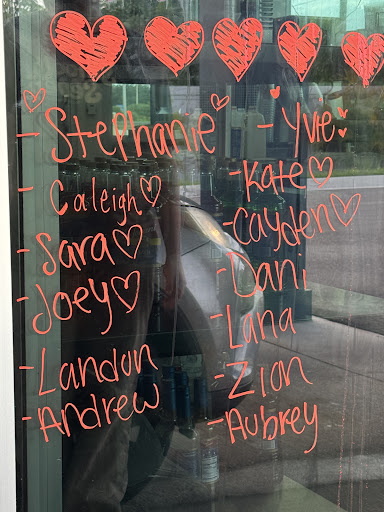 - Stephanie
- Caleigh
- Sara
- Joey
- Landon
- Andrew
- Yvie
- Kate
- Cayden
- Dani
- Lana
- Zion
- Aubrey